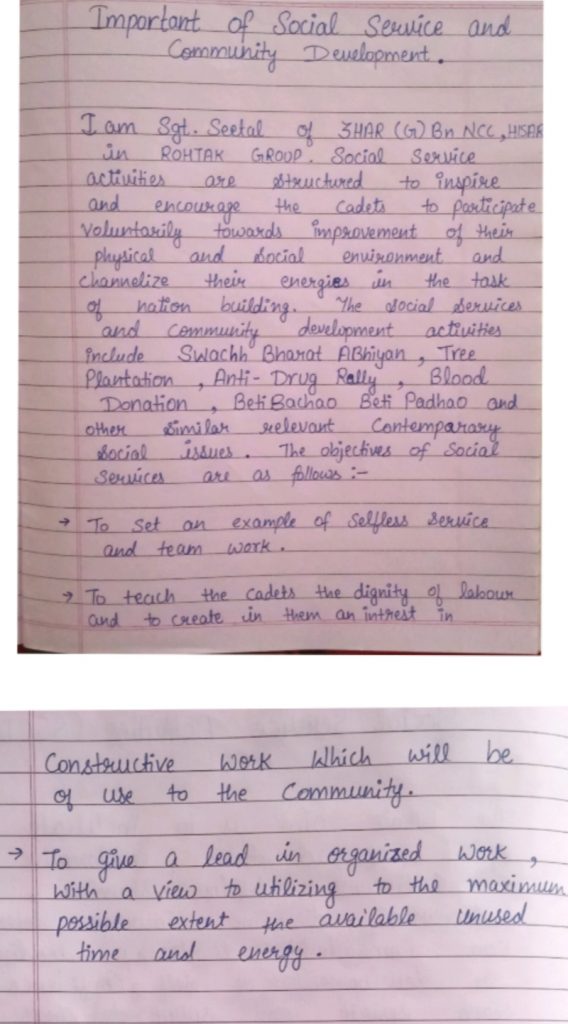 Important of Social Service and
Community Development.
I am Sgt. Seetal of 3HAR (G) Bn NCC, HISAR
in ROHTAK GROUP. Social Service
activities are structured to inspire
and encourage the Cadets to participate
Voluntarily towards improvement of their
physical and social environment and
Channelize their energies in the task
of nation building. The social services
and community development activities
include Swachh Bharat ABhiyan, Tree
Plantation, Anti-Drug Rally, Blood
Donation, Beti Bachao Beti Padhao and
other similar relevant Contemparary
social issues. The objectives of Social
Services are as follows :-
→ To Set an example of Selfless Service
and team work.
→ To teach the Cadets the dignity of labour
and to create in them an intrest in
Constructive Work Which will be
of use to the Community.
→ To give a lead in organized work,
with a view to utilizing to the maximum
possible extent the available unused
time and energy.